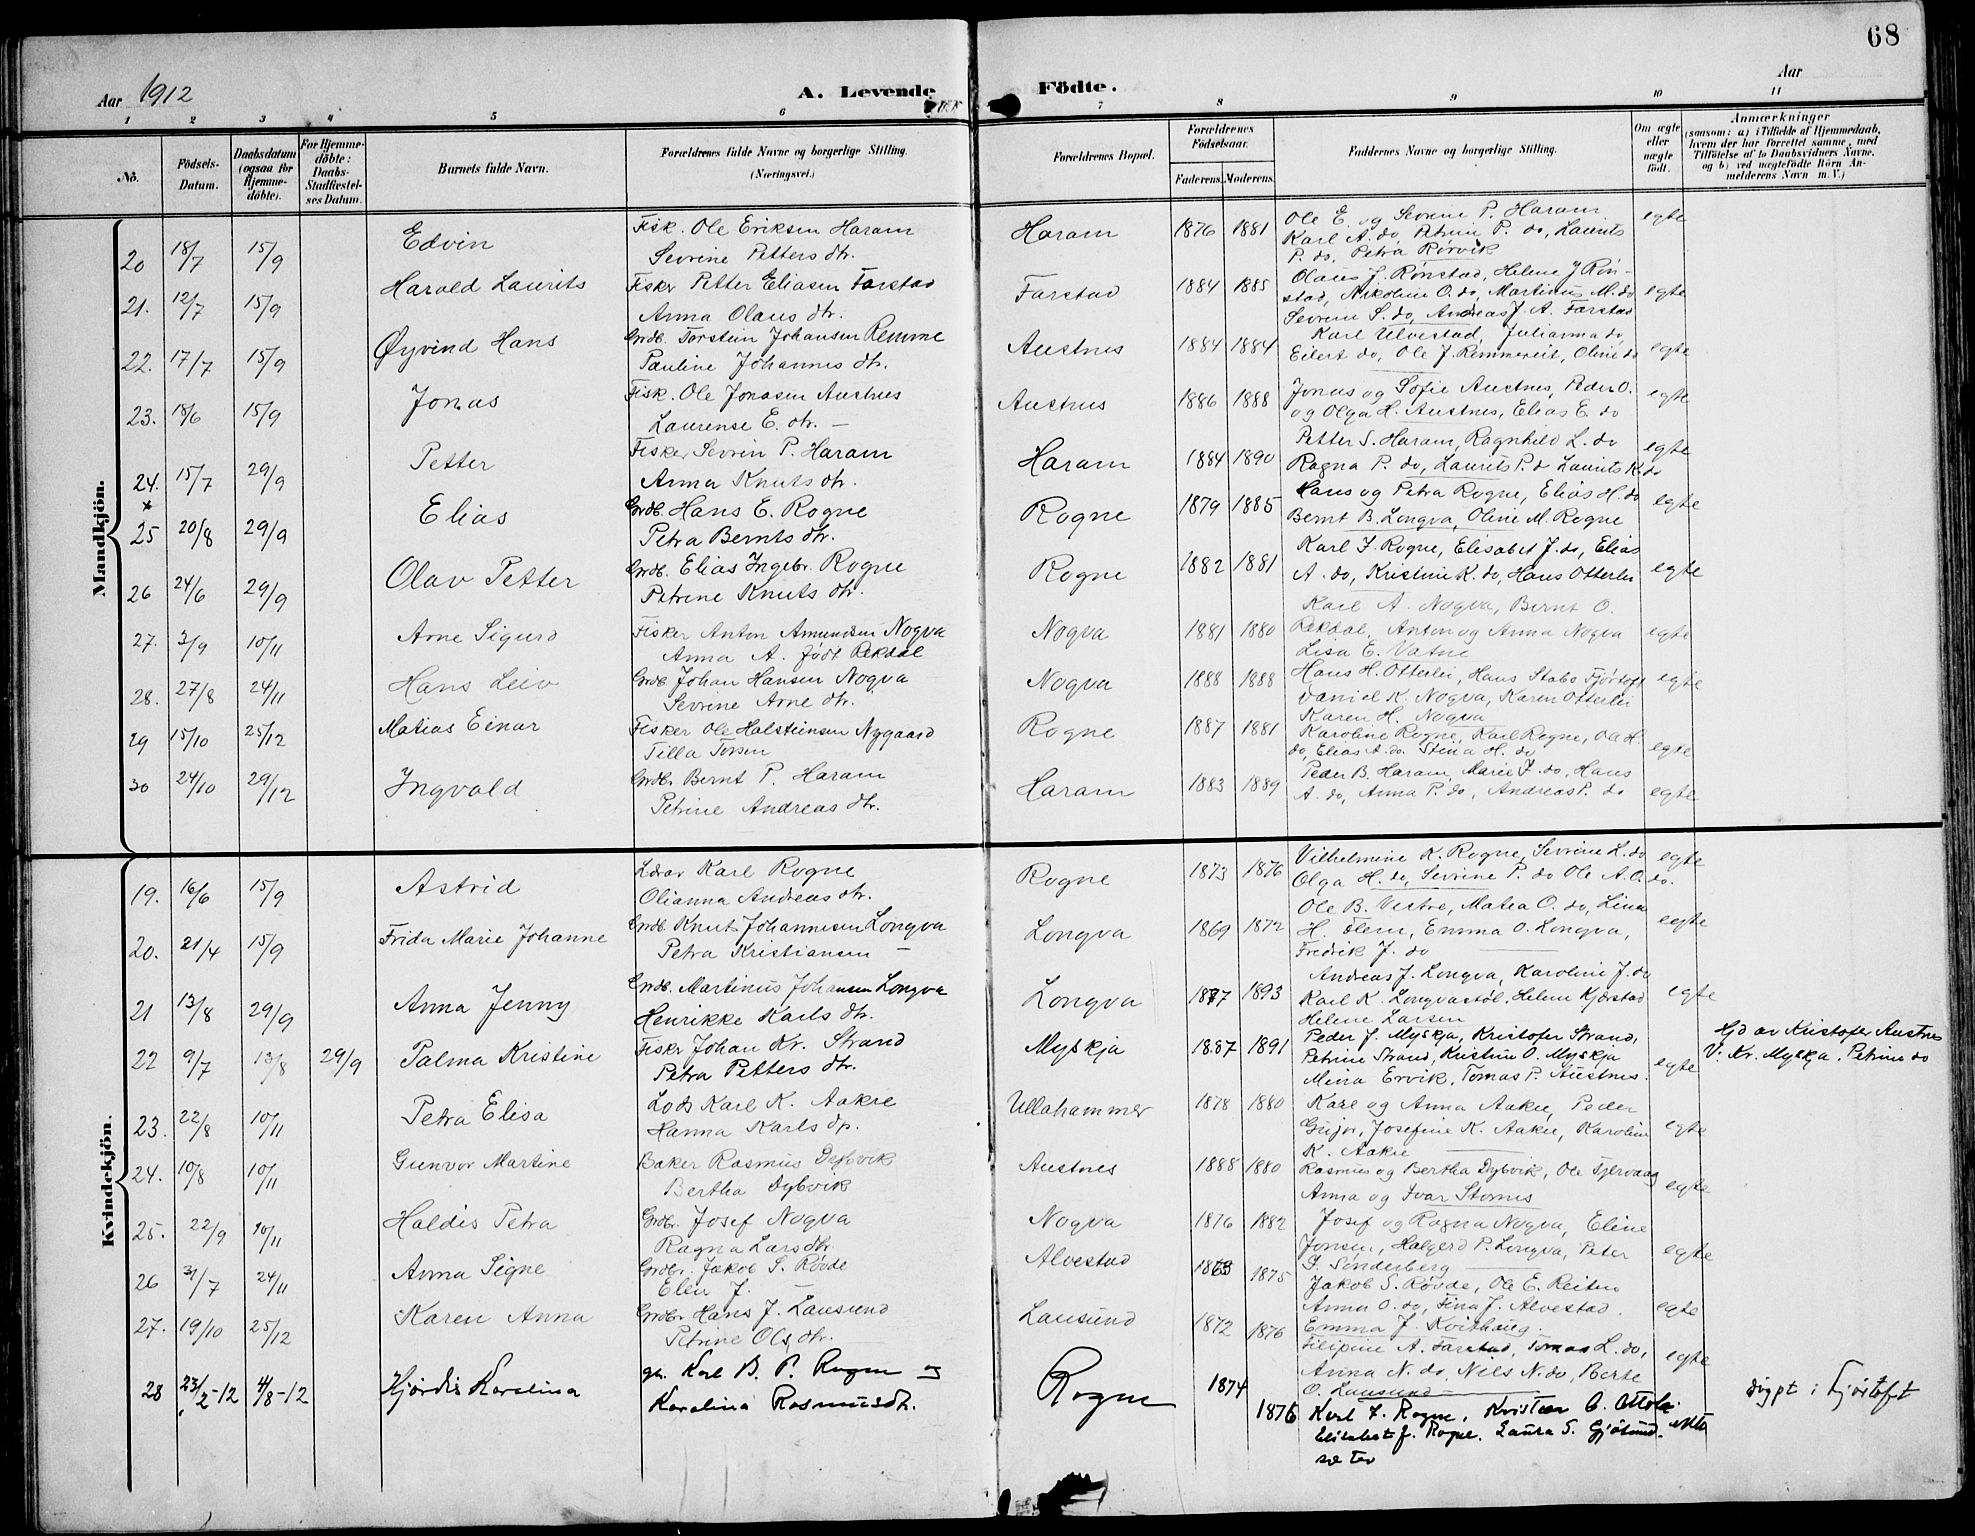 68
Aar 1912
A. Levende Födte.
Aar
1 2 3 4 5 6 7 8 9 10 11
No.
Födsels-Datum.
Daabsdatum (ogsaa for Hjemme-döbte).
For Hjemme-döbte: Daabs-Stadfæstel-ses Datum.
Barnets fulde Navn.
Forældrenes fulde Navne og borgerlige Stilling. (Næringsvei.)
Forældrenes Bopæl.
Forældrenes Födselsaar.
Faderens. Moderens.
Faddernes Navne og borgerlige Stilling.
Om ægte eller uægte födt.
Anmærkninger
(saasom: a) i Tilfælde af Hjemmedaab, hvem der har forrettet samme, med Tilföielse af to Daabsvidners Navne, og b) ved uægtefödte Börn An-melderens Navn m. V.)
Mandkjön.
20 18/7 15/9 Edvin Fisk. Ole Eriksen Haram Haram 1876 1881 Ole E. og Sevrine P. Haram egte
Sevrine Petters dtr. Karl A. do Petrine P. do, Laurits
P. do, Petra Rörvik
21. 12/7 15/9 Harald Laurits Fisker Petter Eliasen Farstad Farstad 1884 1885 Olaus J. Rönstad, Helene J Rön- egte
Anna Olaus dtr. stad, Nikoline O. do, Martinus M. do
Sevrin S. do, Andreas J. A. Farstad
22. 17/7 15/9 Øyvind Hans Grdb. Torstein Johansen Remme Austnes 1884 1884 Karl Ulvestad, Julianna do, egte
Pauline Johannes dtr. Eilert do, Ole J. Remmereit, Oline do
23. 18/6 15/9 Jonas Fisk. Ole Jonasen Austnes Austnes 1886 1888 Jonas og Sofie Austnes, Peder O. egte
Laurense E. dtr. — og Olga H. Austnes, Elias E. do
24. 15/7 29/9 Petter Fisker Sevrin P. Haram Haram 1884 1890 Petter S. Haram, Ragnhild L. do egte
Anna Knuts dtr. Ragna P. do, Laurits P. do Laurits K. do
x
25 20/8 29/9 Elias Grdb. Hans E. Rogne Rogne 1879 1885 Hans og Petra Rogne, Elias H. do egte
Petra Bernts dtr. Bernt B. Longva, Oline M. Rogne
26 24/6 29/9 Olav Petter Grdb. Elias Ingebr. Rogne Rogne 1882 1881 Karl J. Rogne, Elisabet J. do, Elias egte
Petrine Knuts dtr. A. do, Kristine K. do, Hans Otterlei
27. 3/9 10/11 Arne Sigurd Fisker Anton Amundsen Nogva Nogva 1881 1880 Karl A. Nogva, Bernt O. egte
Anna A. født Rekdal Rekdal, Anton og Anna Nogva
Lisa E. Vatne
28. 27/8 24/11 Hans Leiv Grdb Johan Hansen Nogva Nogva 1888 1888 Hans H. Otterlei, Hans Stabo Fjörtoft egte
Sevrine Arne dtr. Daniel K. Nogva, Karen Otterlei
Karen H. Nogva
29 15/10 25/12 Matias Einar Fisker Ole Halsteinsen Nygaard Rogne 1887 1881 Karoline Rogne, Karl Rogne, Ole H. egte
Tilla do, Elias A. do. Stina H. do
30 24/10 29/12 Ingvald Grdb. Bernt P. Haram Haram 1883 1889 Peder B. Haram, Marie J. do, Hans egte
Petrine Andreas dtr. A. do, Anna P. do, Andreas P. do
Kvindekjön.
19. 16/6 15/9 Astrid Lærer Karl Rogne Rogne 1873 1876 Vilhelmine K. Rogne, Sevrine L. do egte
Olianna Andreas dtr. Olga H. do, Sevrine P. do Ole A. O. do.
20. 21/4 15/9 Frida Marie Johanne Grdb. Knut Johannesen Longva Longva 1869 1872 Ole B. Vestre, Matea O. do, Lina egte
Petra Kristiansen — H. Flem, Emma O. Longva,
Fredrik J. do
21 13/8 29/9 Anna Jenny Grdb. Martinus Johansen Longva Longva 1877 1893 Andreas J. Longva, Karoline J. do egte
Henrikke Karls dtr. Karl K. Longvastöl, Helene Kjærstad
Helene Larsen
22 9/7 13/8 29/9 Palma Kristine Fisker Johan Kr. Strand Myskja 1887 1891 Peder J. Myskja, Kristofer Strand, egte Hjd av Kristofer Austnes
Petra Petters dtr. Petrine Strand, Kristine O. Myskja V: Kr. Myskja. Petrine do
Mina Ervik, Tomas P. Austnes.
23. 22/8 10/11 Petra Elisa Lods Karl K. Aakre Ullahammer 1878 1880 Karl og Anna Aakre, Peder egte
Hanna Karls dtr. Josefine K. Aakre, Karoline
K. Aakre
24. 10/8 10/11 Gunvor Martine Baker Rasmus Dybvik Austnes 1888 1880 Rasmus og Bertha Dybvik, Ole Tjervaag egte
Bertha Dybvik Anna og Ivar Stornes
25. 22/9 10/11 Haldis Petra Grdbr. Josef Nogva Nogva 1876 1882 Josef og Ragna Nogva, Eline egte
Ragna Lars dtr Jonsen, Halgerd P. Longva, Peter
J. Sønderberg
26 31/7 24/11 Anna Signe Grdbr. Jakob S. Røvde Alvestad 1875 Jakob S. Røvde, Ole E. Reiten egte
Elen J. — Anna O. do, Tina J. Alvestad.
Emma J. Kvithaug.
27. 19/10 25/12 Karen Anna Grdbr Hans J. Lausund Lausund 1872 1876 Filipine A. Farstad, Tomas L. do, egte
Petrine Ols dtr. Anna N. do, Nils N. do, Berte
O. Lausund
28 23/2-12 4/8-12 Hjørdis Karolina ga. Karl B. P. Rogne og Rogne 1874 Karl J. Rogne, Kristian egte døpt i Fjørtoft
Karolina Rasmusdtr. 1876 Elisabet J. Rogne. Laura S. Gjøsund-
sæter